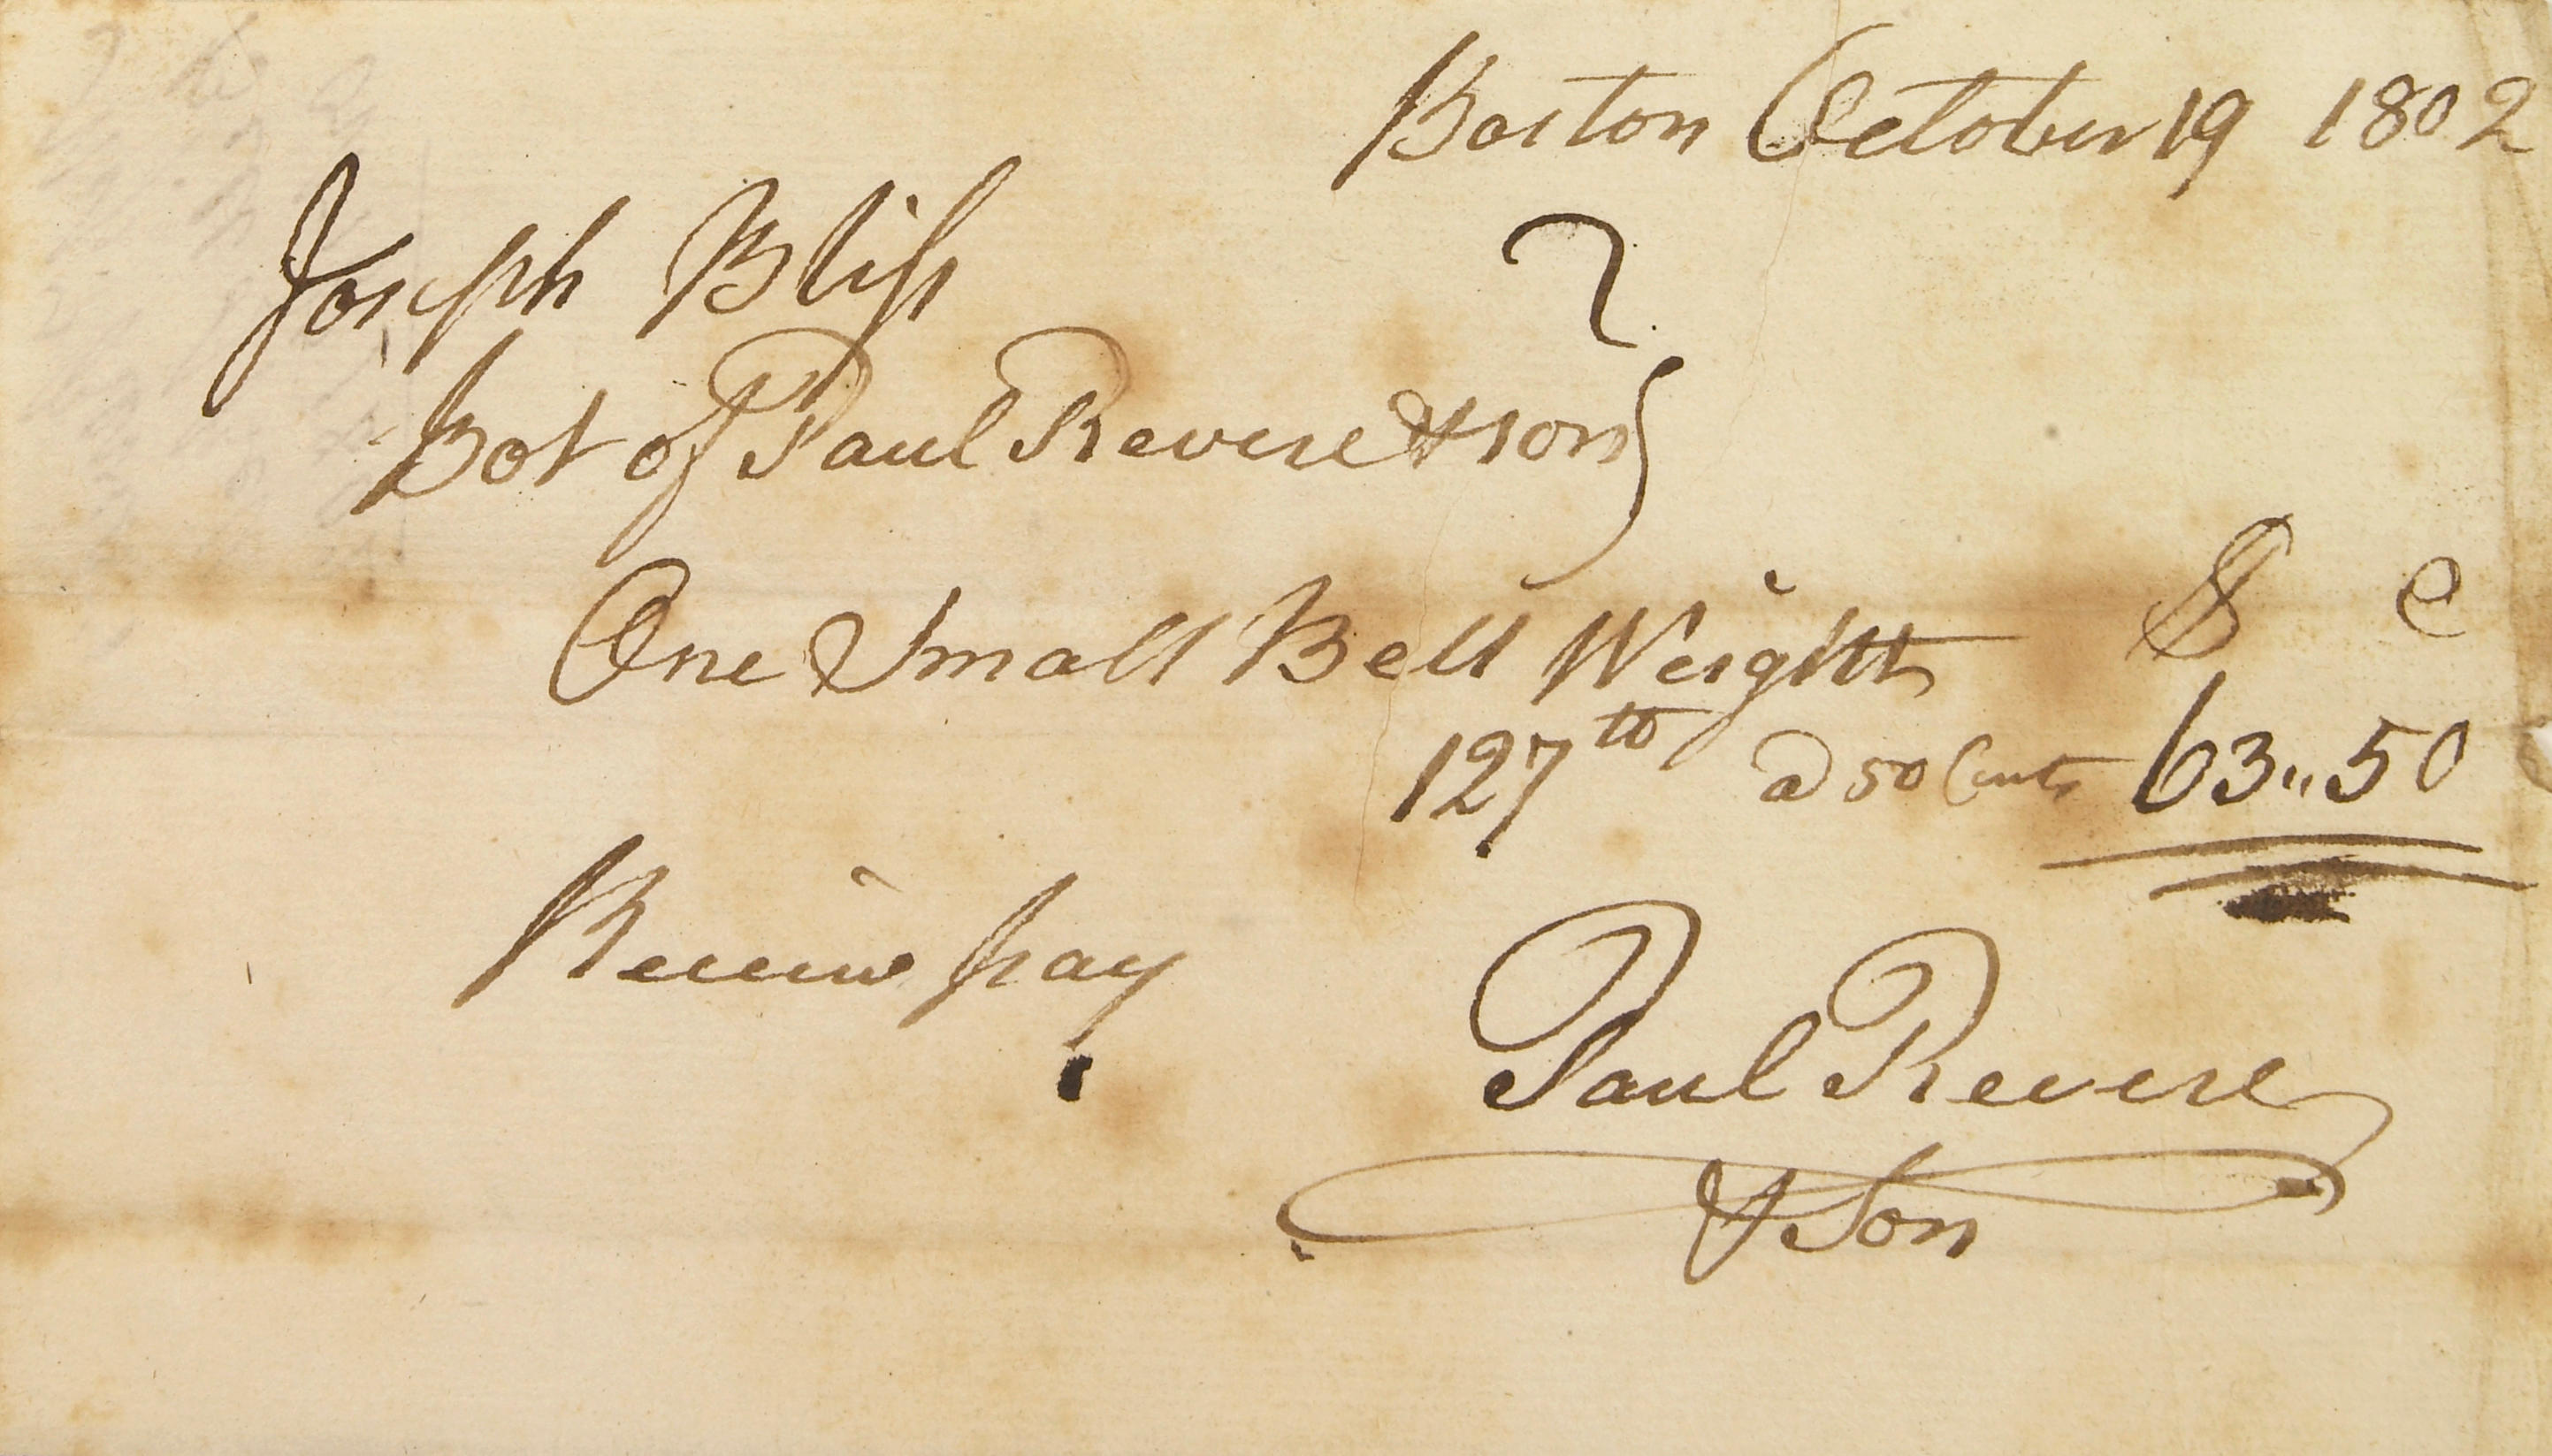 Boston October 19 1802
Joseph Bliss
Bot of Paul Revere & son
One Small Bell Weight $ C
127 lb a 50 Cents 63..50
Receivd pay
Paul Revere
& Son